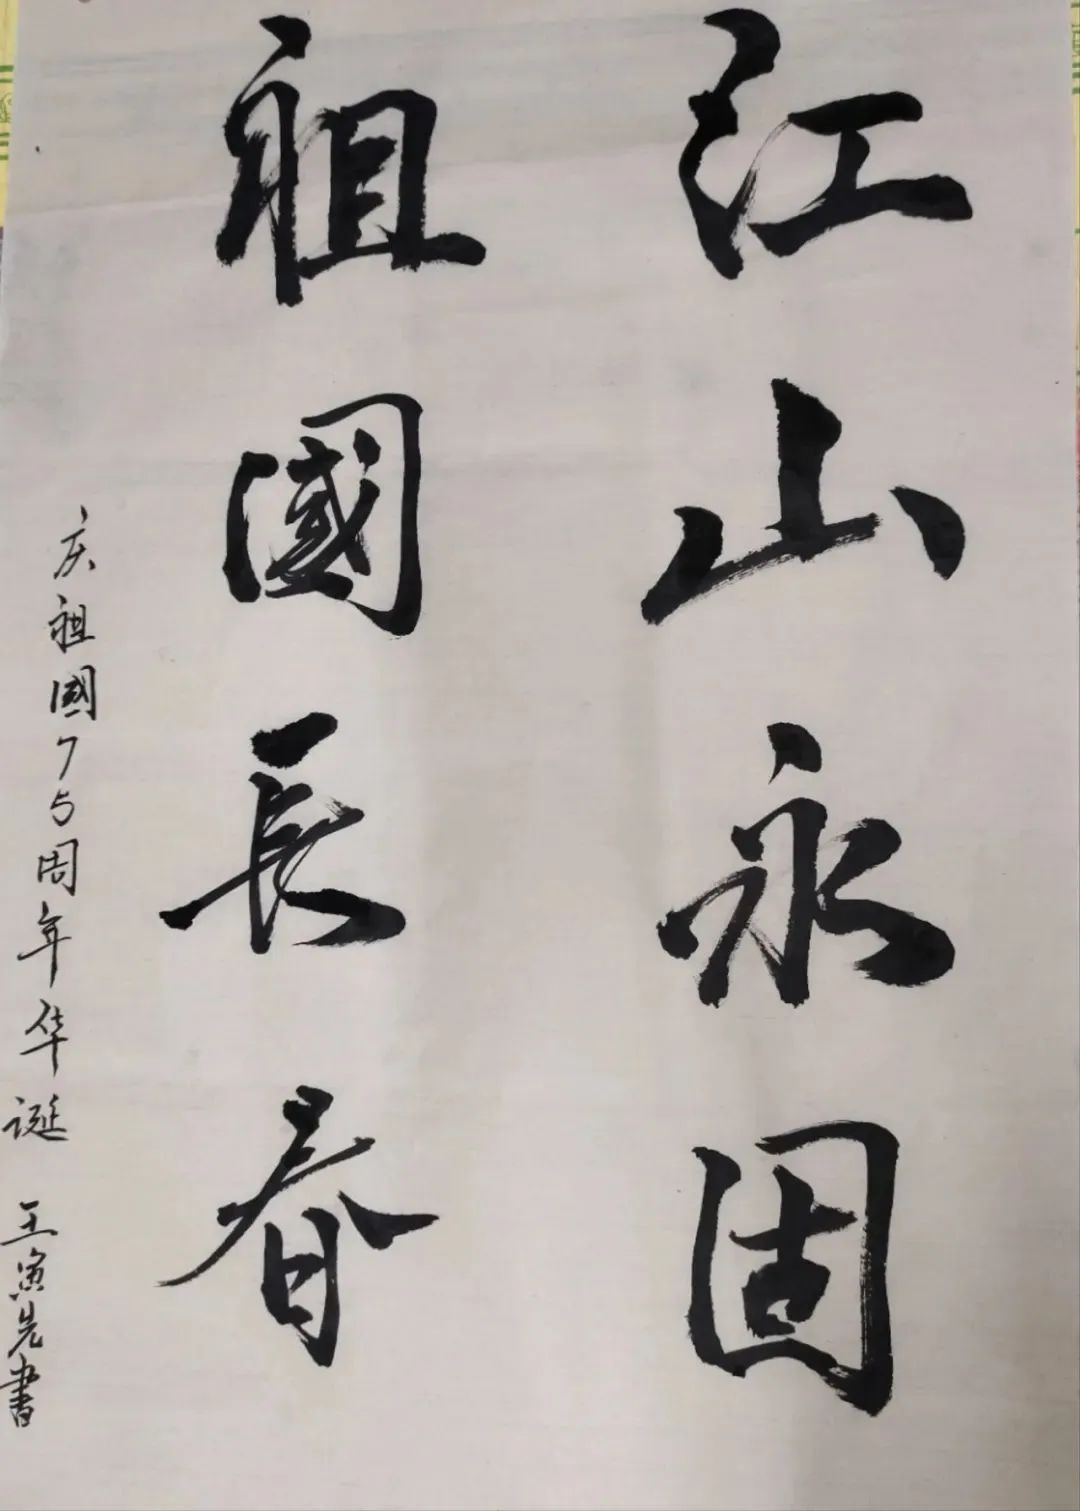 江山永固
祖國長春
庆祖國75周年华诞 王寅先書